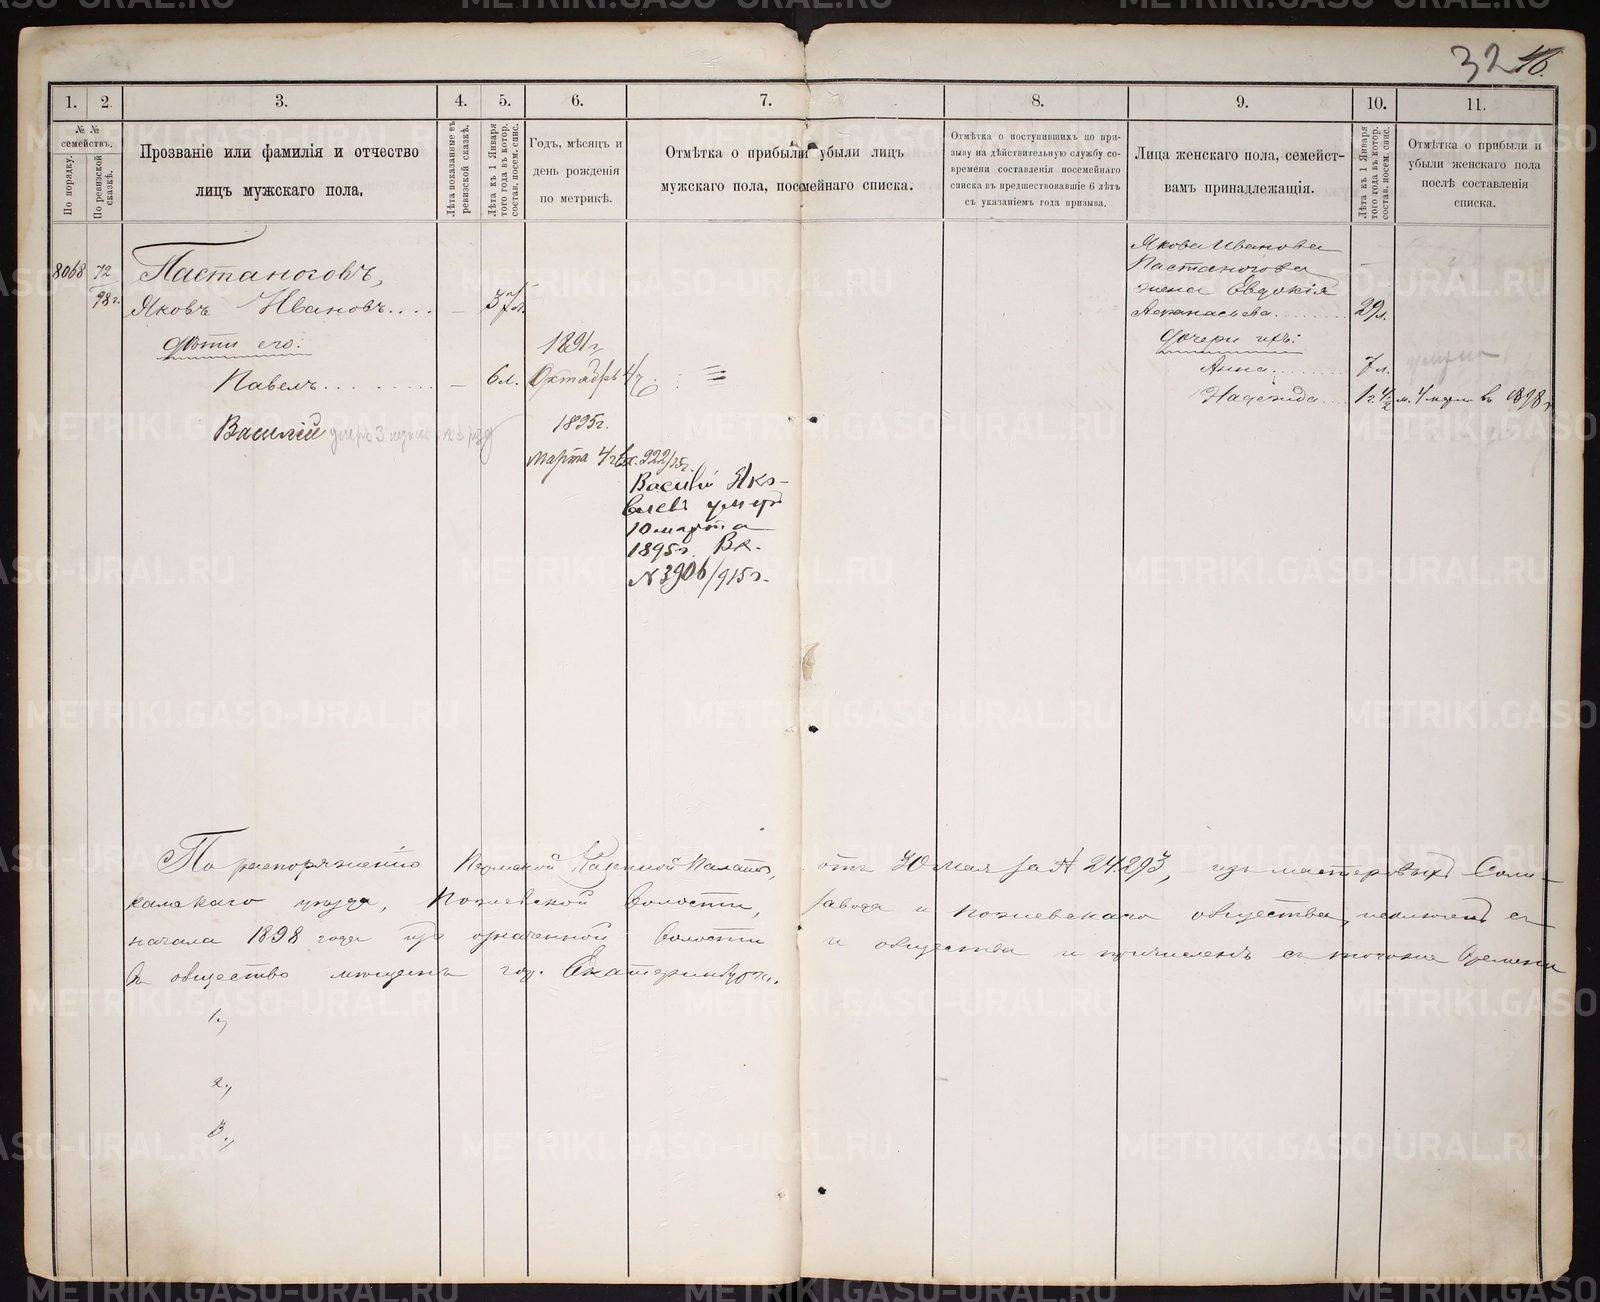 32 46.
1. 2. 3. 4. 5. 6. 7. 8. 9. 10. 11.
№ №
семействъ.
По порядку.
По ревизской
сказкѣ.
Прозваніе или фамилія и отчество
лицъ мужскаго пола,
Лѣта показанные въ
ревизской сказкѣ.
Лѣта къ 1 Января
того года въ котор.
состав. посем. спис.
Годъ, мѣсяцъ и
день рожденія
по метрикѣ.
Отмѣтка о прибыли убыли лицъ
мужскаго пола, посемейнаго списка.
Отмѣтка о поступившихъ по при-
зыву на дѣйствительную службу со-
времени составленія посемейнаго
списка въ предшествовавшіе 6 лѣтъ
съ указаніемъ года призыва.
Лица женскаго пола, семейст-
вамъ принадлежащія.
Лѣта къ 1 Января
того года въ котор.
состав. посем. спис.
Отмѣтка о прибыли и
убыли женскаго пола
послѣ составленія
списка.
8068 72
98 г.
Пастаноговъ,
Яковъ Ивановъ....
дѣти его:
Павелъ.......... 6 л.
1891 г.
Октября 4
Василій умеръ
1895 г.
Марта 4
Вх. 922/15 г.
Василій Яко-
влевъ умеръ
10 марта
1895 г. Вх.
№ 3906/915 г.
Якова Иванова
Пастаногова
жена Евдокія
Афанасьева........ 29 л.
Дочери ихъ:
Анна........ 7 л. умерла
Надежда.... 1 г. 4 м. в 1898 г.
По распоряженію Пермской Казенной Палаты, отъ 30 мая за № 24293, изъ мастеровыхъ Соли-
камскаго уѣзда, Пожевской волости, завода и Пожевскаго общества, исключенъ съ
начала 1898 года изъ означенной волости и общества и причисленъ съ тогоже времени
въ общество мѣщанъ гор. Екатеринбурга.
1,
2,
3,
METRIKI.GASO-URAL.RU